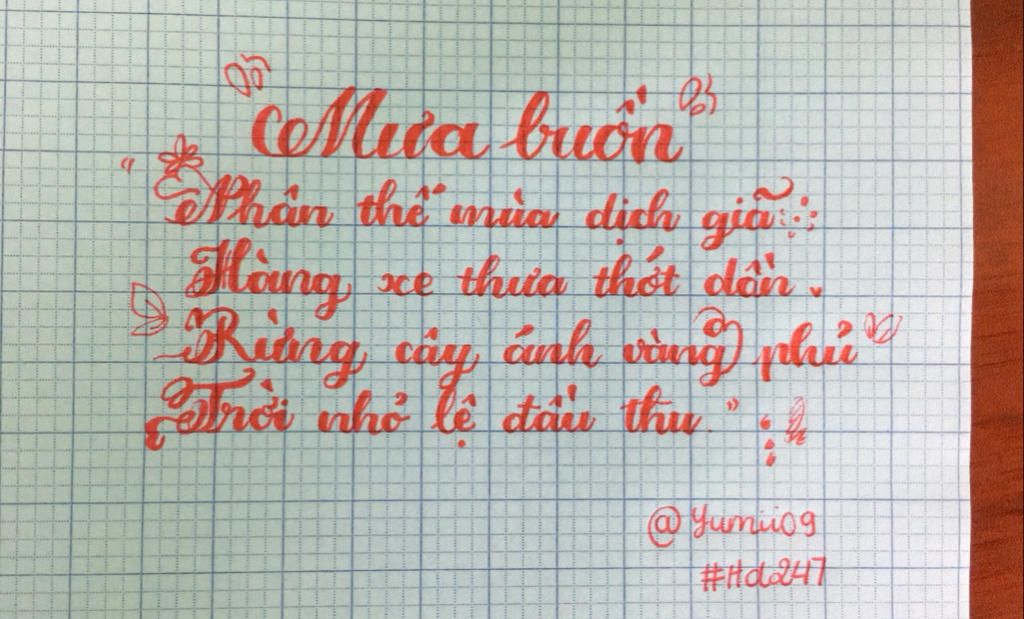 Mưa buồn
"Nhân thế mùa dịch giã
Hàng xe thưa thớt dần
Rừng cây ánh vàng phủ
Trời nhỏ lệ đầu thu."
@Yumii09
#Hd247